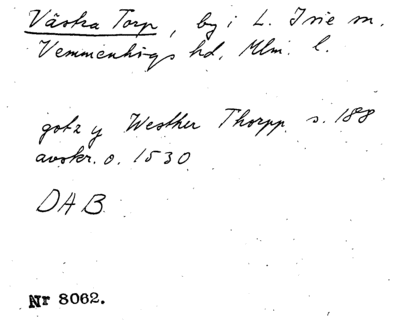 Västra Torp, by i L. Isie sn.
Vemmenhögs hd, Mlm. l.
gotz y Westher Thorpp s. 188
avskr. o. 1530
DAB
Nr 8062.